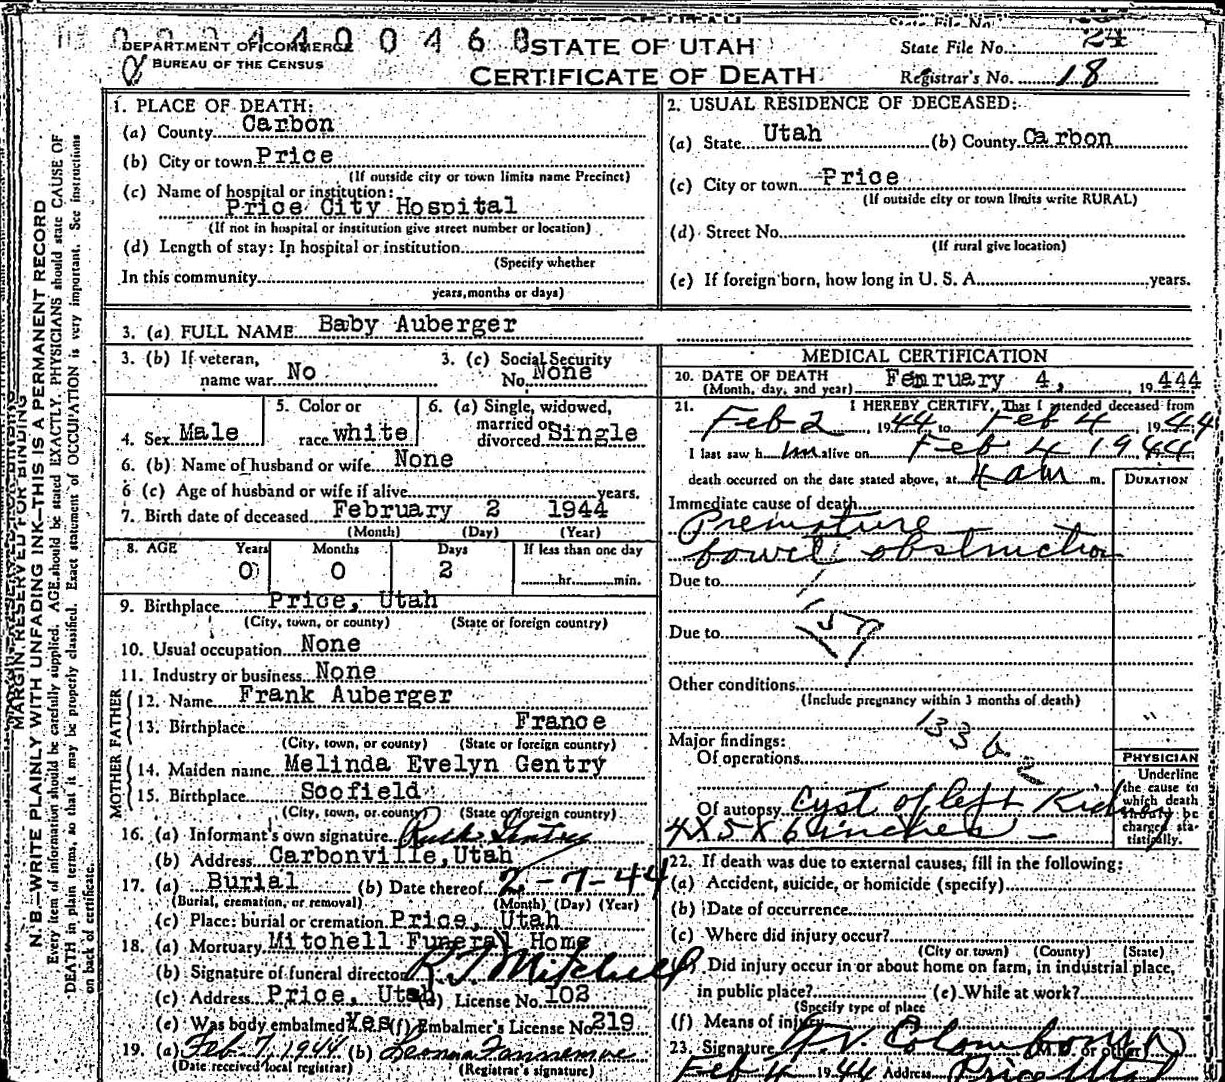 0 0 0 4 4 0 0 4 6 8
DEPARTMENT OF COMMERCE
BUREAU OF THE CENSUS
STATE OF UTAH
CERTIFICATE OF DEATH
State File No. 24
Registrar's No. 18
MARGIN RESERVED FOR BINDING
N. B.—WRITE PLAINLY WITH UNFADING INK—THIS IS A PERMANENT RECORD
Every item of information should be carefully supplied. AGE should be stated EXACTLY. PHYSICIANS should state CAUSE OF
DEATH in plain terms, so that it may be properly classified. Exact statement of OCCUPATION is very important. See instructions
on back of certificate.
1. PLACE OF DEATH:
(a) County Carbon
(b) City or town Price
(If outside city or town limits name Precinct)
(c) Name of hospital or institution:
Price City Hospital
(If not in hospital or institution give street number or location)
(d) Length of stay: In hospital or institution
(Specify whether
In this community
years, months or days)
2. USUAL RESIDENCE OF DECEASED:
(a) State Utah (b) County Carbon
(c) City or town Price
(If outside city or town limits write RURAL)
(d) Street No.
(If rural give location)
(e) If foreign born, how long in U. S. A. years.
3. (a) FULL NAME Baby Auberger
3. (b) If veteran, name war No
3. (c) Social Security No. None
4. Sex Male
5. Color or race white
6. (a) Single, widowed, married or divorced Single
6. (b) Name of husband or wife None
6 (c) Age of husband or wife if alive years.
7. Birth date of deceased February 2 1944
(Month) (Day) (Year)
8. AGE Years Months Days If less than one day
0 0 2 hr. min.
9. Birthplace Price, Utah
(City, town, or county) (State or foreign country)
10. Usual occupation None
11. Industry or business None
FATHER
12. Name Frank Auberger
13. Birthplace France
(City, town, or county) (State or foreign country)
MOTHER
14. Maiden name Melinda Evelyn Gentry
15. Birthplace Scofield
(City, town, or county) (State or foreign country)
16. (a) Informant's own signature Gentry
(b) Address Carbonville, Utah
17. (a) Burial (b) Date thereof 2-7-44
(Burial, cremation, or removal) (Month) (Day) (Year)
(c) Place: burial or cremation Price, Utah
18. (a) Mortuary Mitchell Funeral Home
(b) Signature of funeral director Mitchell
(c) Address Price, Utah (d) License No. 102
(e) Was body embalmed Yes (f) Embalmer's License No. 219
19. (a) Feb. 7, 1944 (b)
(Date received local registrar) (Registrar's signature)
MEDICAL CERTIFICATION
20. DATE OF DEATH Femruary 4, 19 444
(Month, day, and year)
21. I HEREBY CERTIFY, That I attended deceased from
Feb 2, 1944 to Feb 4, 1944
I last saw h im alive on Feb 4 1944
death occurred on the date stated above, at 4 am m.
DURATION
Immediate cause of death
Premature
bowel obstruction
Due to
157
Due to
Other conditions
(Include pregnancy within 3 months of death)
Major findings:
133b
2
Of operations
Of autopsy Cyst of left Kidney
4 X 5 X 6 inches —
PHYSICIAN
Underline the cause to which death should be charged statistically.
22. If death was due to external causes, fill in the following:
(a) Accident, suicide, or homicide (specify)
(b) Date of occurrence
(c) Where did injury occur?
(City or town) (County) (State)
Did injury occur in or about home on farm, in industrial place,
in public place? (e) While at work?
(Specify type of place
(f) Means of injury
23. Signature Colombo M. D. or other)
Feb 4 1944 Address Price Utah